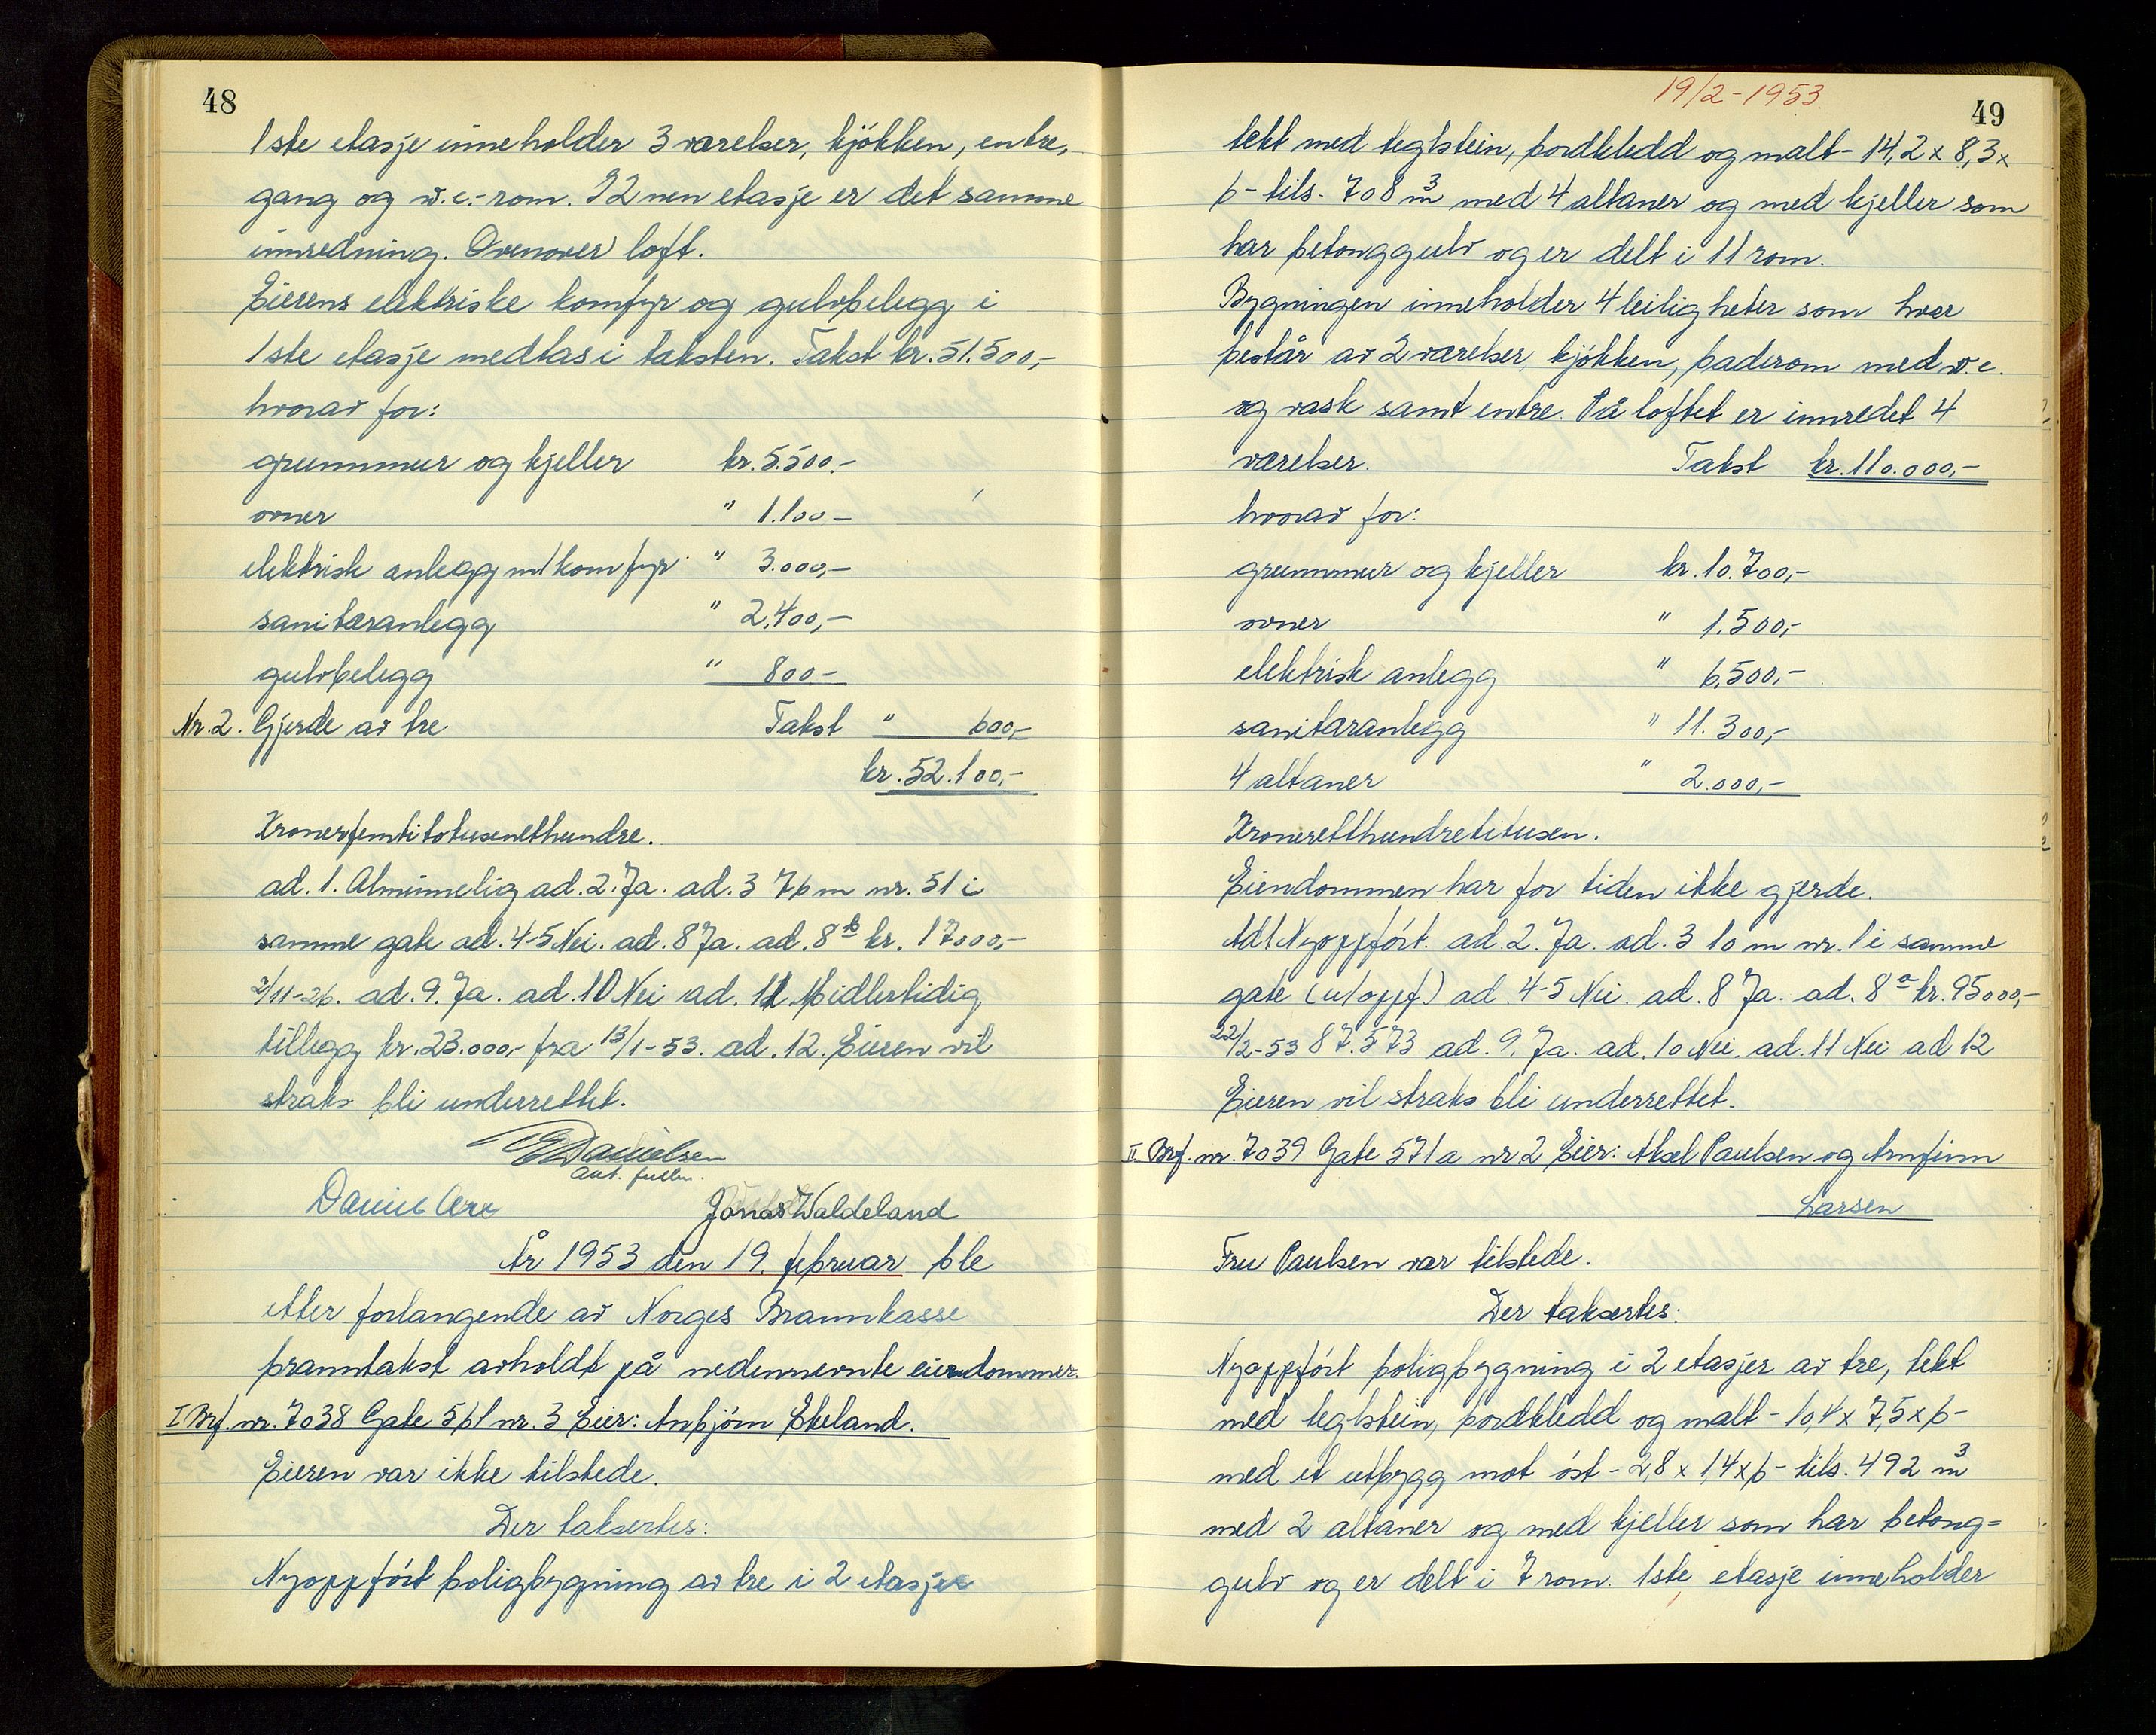 48
1ste etasje inneholder 3 værelser, kjøkken, entre,
gang og w.c.-rom. I 2nen etasje er det samme
innredning. Ovenover loft.
Eierens elektriske komfyr og gulvbelegg i
1ste etasje medtas i taksten. Takst kr. 51.500,-
hvorav for:
grunnmur og kjeller kr. 5.500.-
ovner " 1.100 -
elektrisk anlegg m/komfyr " 3.000,-
sanitæranlegg " 2.400,-
gulvbelegg " 800 -
Nr. 2. Gjerde av tre Takst " 600,-
kr. 52.100,-
Kronerfemtitotusenetthundre.
ad. 1. Alminnelig ad. 2. Ja. ad. 3 76 m nr. 51 i
samme gate ad. 4-5 Nei. ad. 8 Ja. ad. 8 b kr. 17000,-
2/11-26. ad. 9. Ja. ad. 10 Nei ad. 11 Midlertidig
tillegg kr. 23.000,- fra 13/1-53. ad. 12. Eieren vil
straks bli underrettet.
Danielsen
aut. fullm.
Jonas Waldeland
År 1953 den 19. februar ble
etter forlangende av Norges Brannkasse
branntakst avholdt på nedennevnte eiendommer.
I Brf. nr. 7038 Gate 561 nr. 3 Eier: Anbjørn Ekeland.
Eieren var ikke tilstede.
Der taksertes:
Nyoppført boligbygning av tre i 2 etasjer
19/2-1953.
49
tekt med teglstein, bordkledd og malt - 14,2 x 8,3 x
6 - tils. 708 m3 med 4 altaner og med kjeller som
har betonggulv og er delt i 11 rom.
Bygningen inneholder 4 leiligheter som hver
består av 2 værelser, kjøkken, baderom med w.c.
og vask samt entre. På loftet er innredet 4
værelser. Takst kr. 110.000,-
hvorav for:
grunnmur og kjeller kr. 10.700,-
ovner " 1.500,-
elektrisk anlegg " 6.500,-
sanitæranlegg " 11.300,-
4 altaner " 2.000,-
Kroneretthundretitusen.
Eiendommen har for tiden ikke gjerde.
Ad 1 Nyoppført. ad. 2. Ja. ad. 3 10 m nr. 1 i samme
gate (u/oppf) ad. 4-5 Nei. ad. 8 Ja. ad. 8 a kr. 95000,-
22/2-53 87.573 ad. 9. Ja. ad. 10 Nei. ad. 11 Nei ad 12
Eieren vil straks bli underrettet.
II Brf. nr. 7039 Gate 571a nr 2 Eier: Aksel Paulsen og Arnfinn
Larsen
Fru Paulsen var tilstede.
Der taksertes:
Nyoppført boligbygning i 2 etasjer av tre, tekt
med teglstein, bordkledd og malt - 10,4 x 7,5 x 6 -
med et utbygg mot øst - 2,8 x 1,4 x 6 - tils. 492 m3
med 2 altaner og med kjeller som har betong=
gulv og er delt i 7 rom. 1ste etasje inneholder